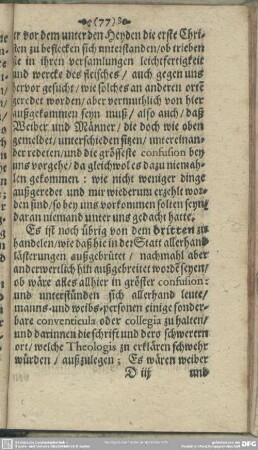 (77)
er vor dem unter den Heyden die erste Chri-
sten zu beflecken sich unterstanden/ ob trieben
sie in ihren versamlungen leichtfertigkeit
und wercke des fleisches/ auch gegen uns
hervor gesucht/ wie solches an anderen orten
geredet worden/ aber vermuthlich von hier
außgekommen seyn muß/ also auch/ daß
Weiber und Männer/ die doch wie oben
gemeldet/ unterschieden sitzen/ untereinan-
der redeten/ und die grösseste confusion bey
uns vorgehe/ da gleichwol es dazu niemah-
len gekommen: wie nicht weniger dinge
außgeredet und mir wiederum erzehlt wor-
den sind/ so bey uns vorkommen solten seyn/
daran niemand unter uns gedacht hatte.
Es ist noch übrig von dem dritten zu
handelen/ wie daß hie in der Statt allerhand
lästerungen außgebrütet/ nachmahl aber
anderwerlich hin außgebreitet wordẽ seyen/
ob wäre alles allhier in gröster confusion:
und unterstünden sich allerhand leute/
manns- und weibs-personen einige sonder-
bare conventicula oder collegia zu halten/
und darinnen die schrifft und dero schwerern
ort/ welche Theologis zu erklären schwehr
würden/ außzulegen; Es wären weiber
D iij und